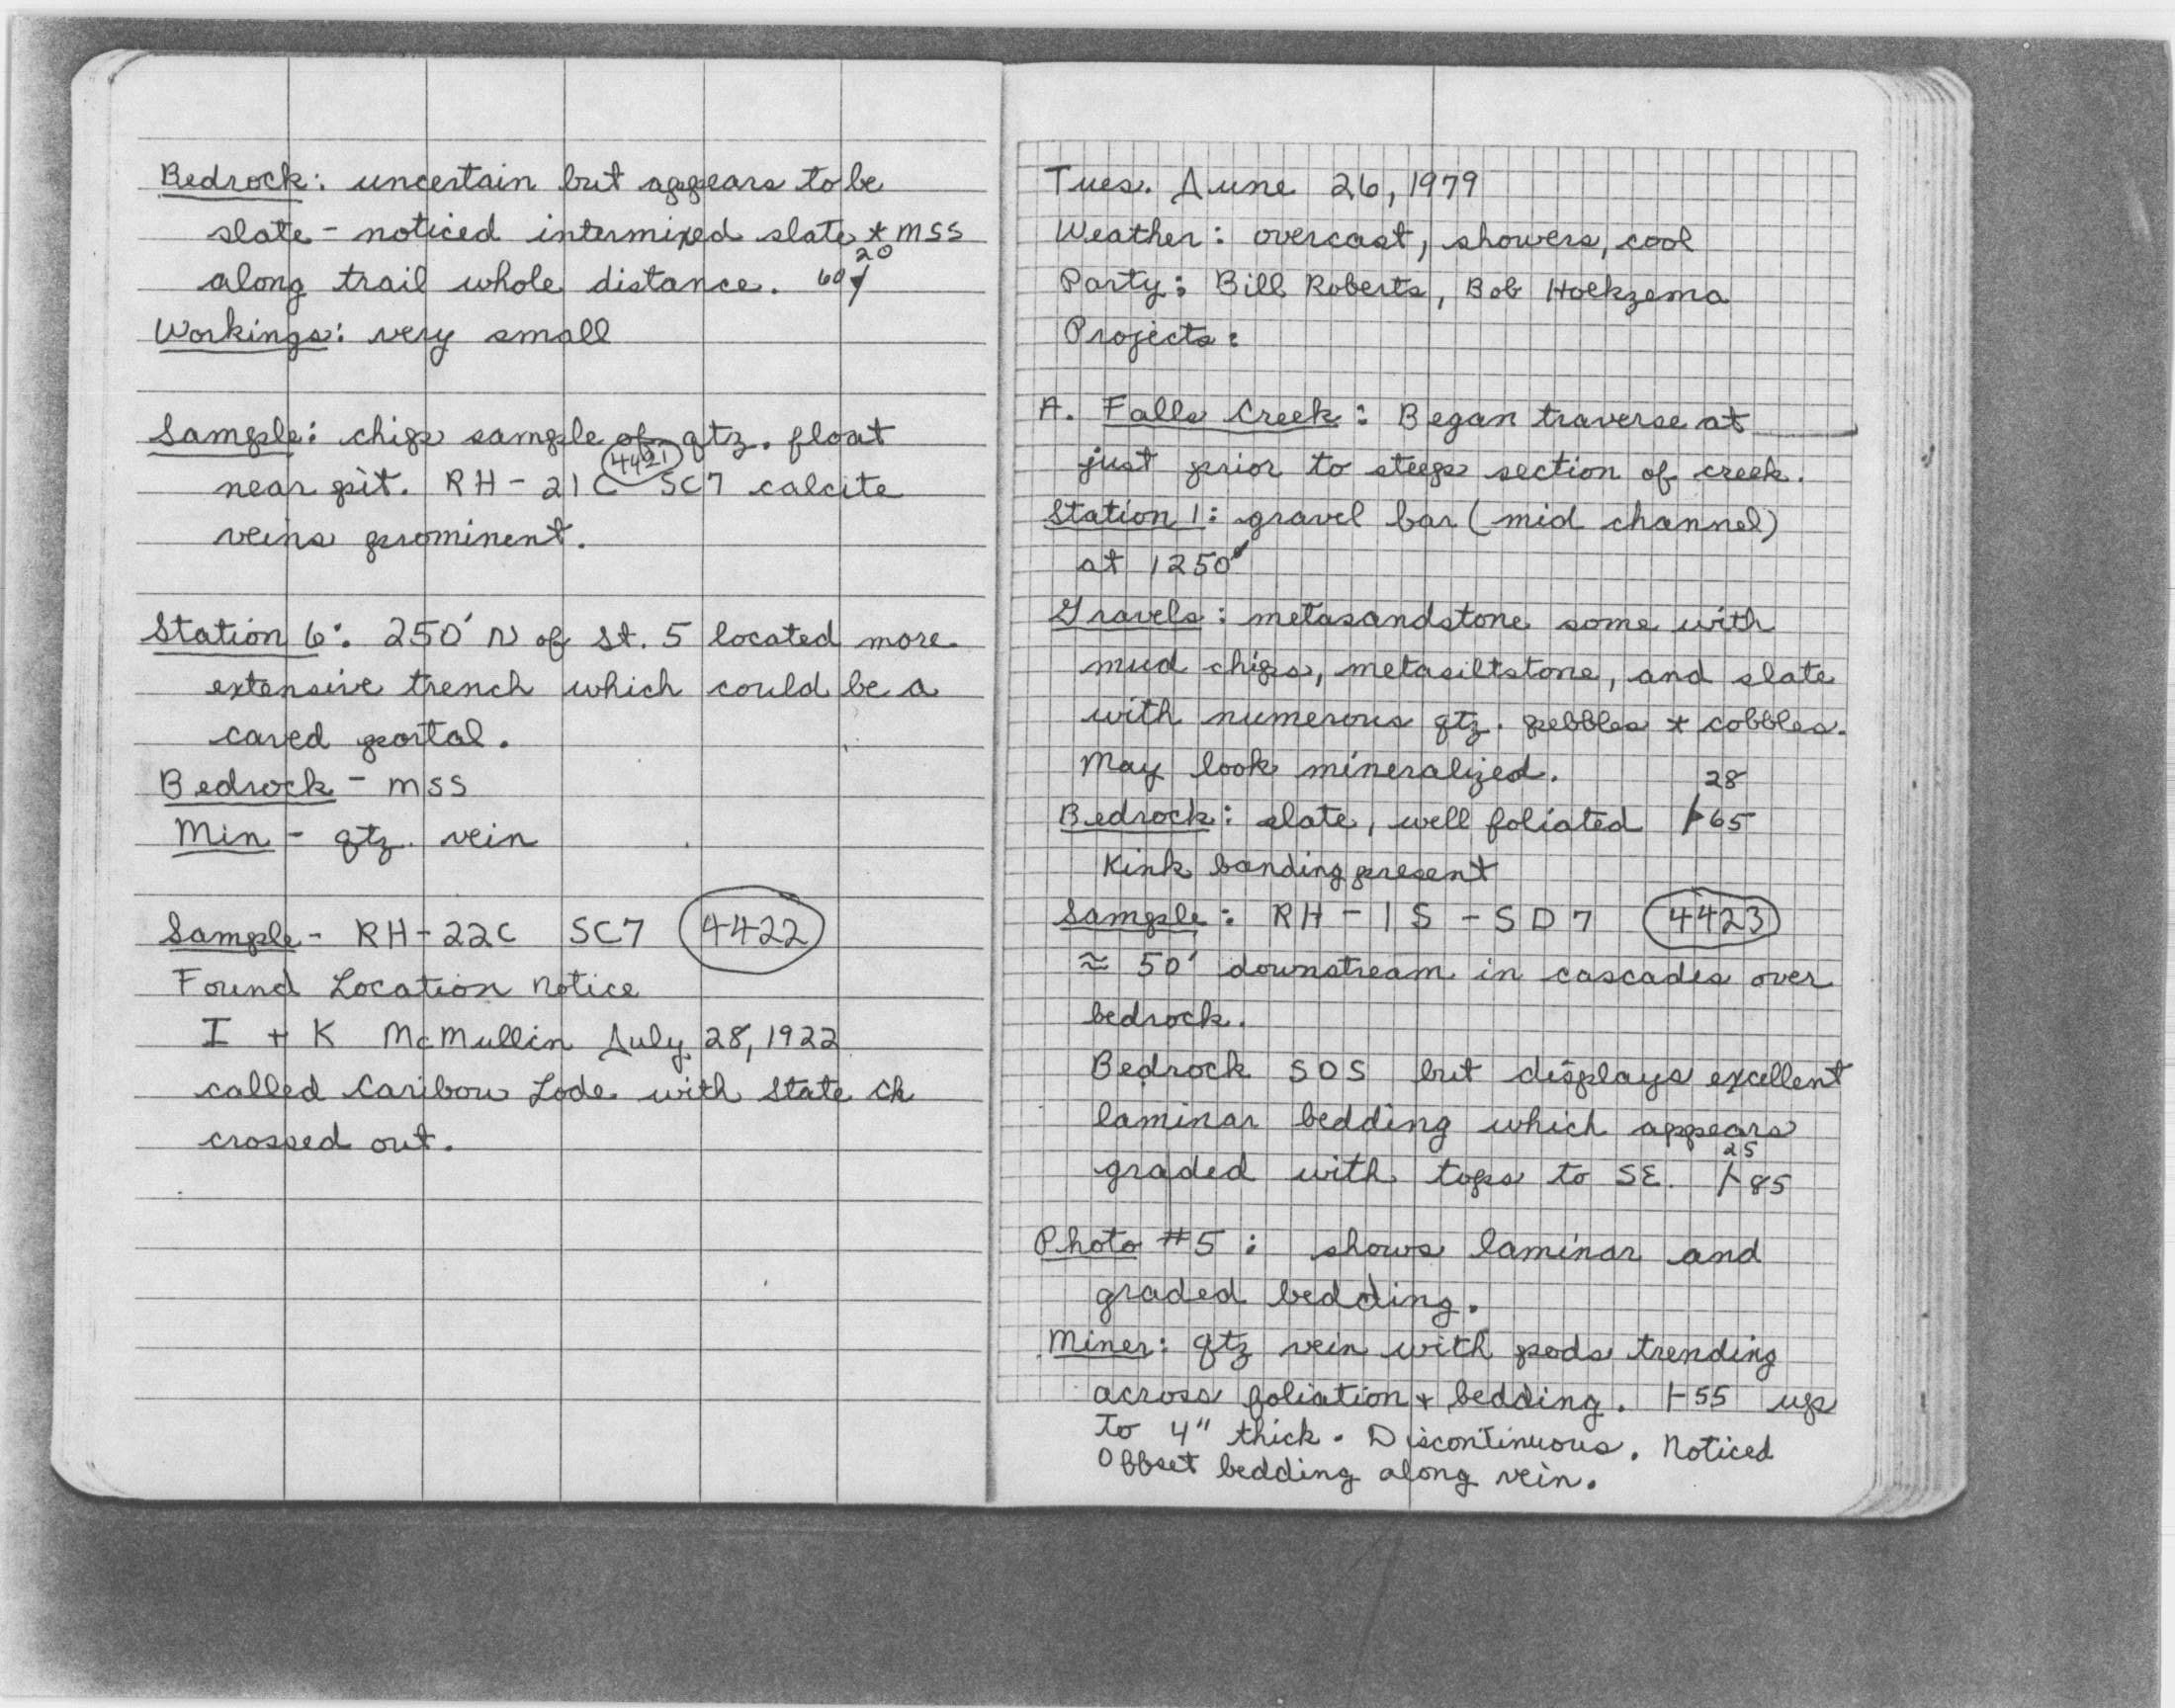 Bedrock: uncertain but appears to be
slate - noticed intermixed slate + mss
along trail whole distance. 60 20
Workings: very small
Sample: chip sample of qtz. float
near pit. RH-21C SC7 calcite
4421
veins prominent.
Station 6: 250' N of St. 5 located more
extensive trench which could be a
caved portal.
Bedrock - mss
Min - qtz. vein
Sample - RH-22C SC7 4422
Found Location Notice
I + K McMullin July 28, 1922
called Caribou Lode with State Ck
crossed out.
Tues. June 26, 1979
Weather: overcast, showers, cool
Party: Bill Roberts, Bob Hoekzema
Projects:
A. Falls Creek: Began traverse at
just prior to steep section of creek.
Station 1: gravel bar (mid channel)
at 1250'
Gravels: metasandstone some with
mud chips, metasiltstone, and slate
with numerous qtz. pebbles + cobbles.
May look mineralized.
Bedrock: slate, well foliated 28 65
Kink banding present
Sample: RH-1S-SD7 4423
≈ 50' downstream in cascades over
bedrock.
Bedrock SOS but displays excellent
laminar bedding which appears
graded with tops to SE. 25 85
Photo #5: shows laminar and
graded bedding.
Miner: qtz vein with pods trending
across foliation + bedding. 55 up
to 4" thick. Discontinuous. Noticed
Offset bedding along vein.